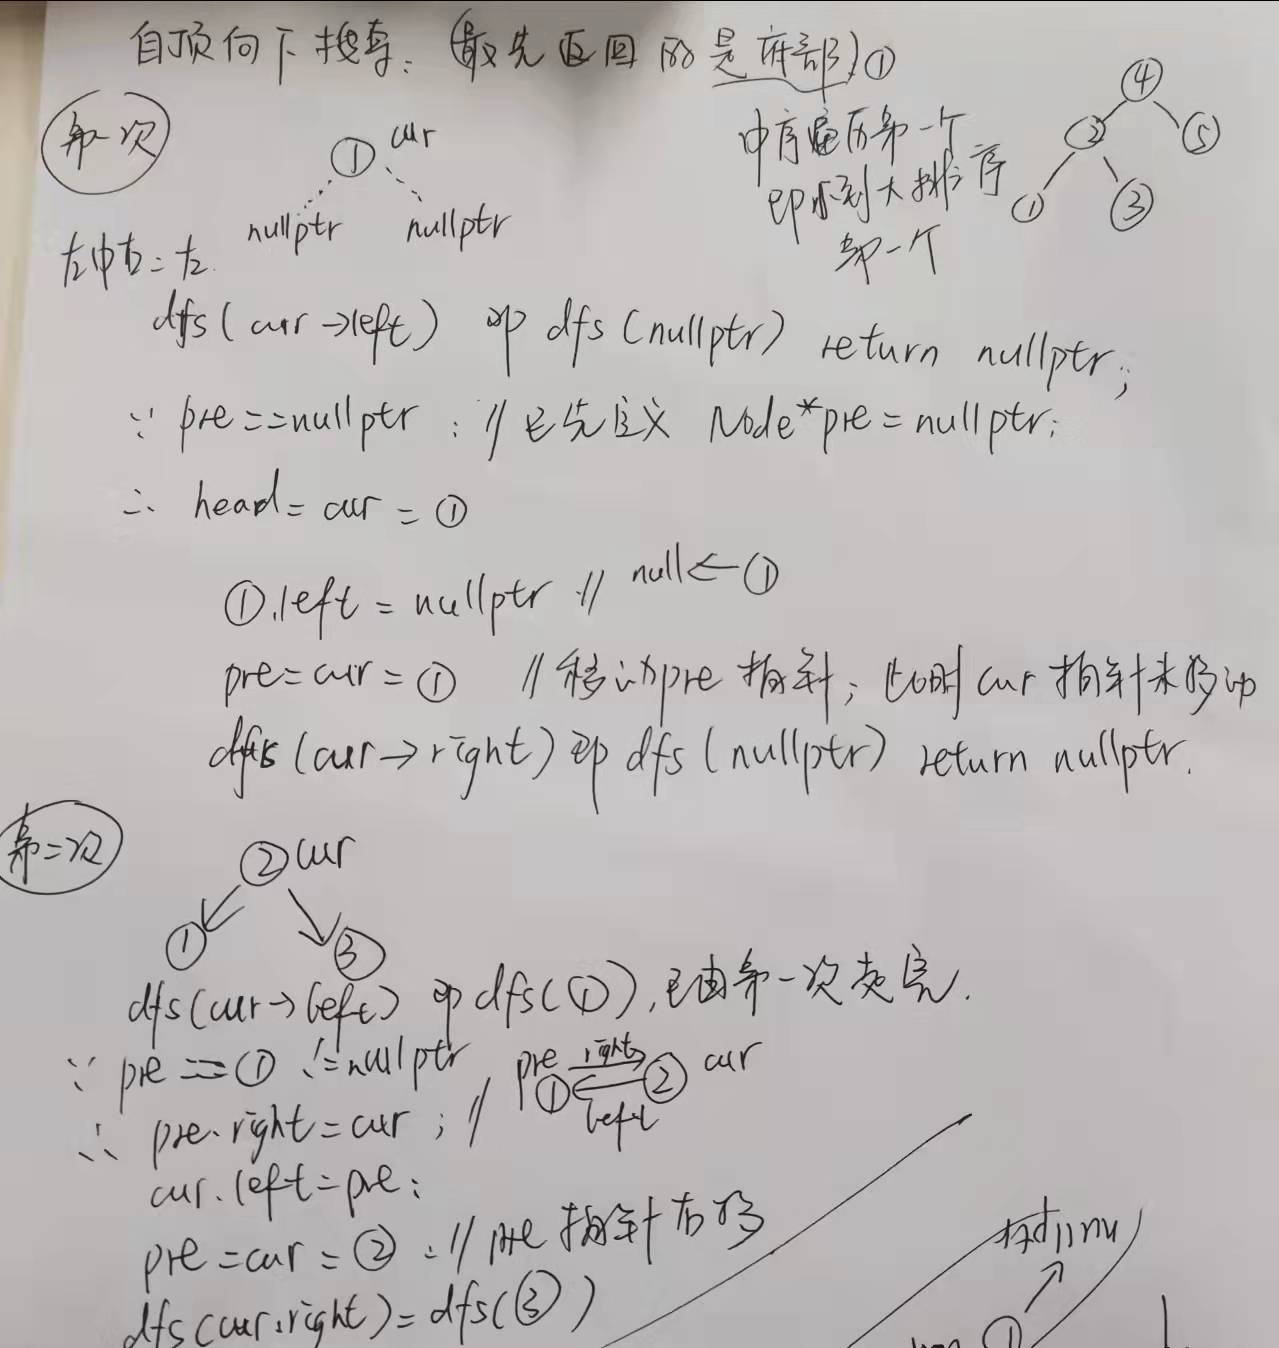 自顶向下搜索：(最先返回的是底部)①
④
② ⑤
① ③
中序遍历第一个
即小到大排序
第一个
第一次
① cur
nullptr nullptr
左中右=左.
dfs(cur→left) 即 dfs(nullptr) return nullptr;
∵ pre==nullptr ; // 已先定义 Node*pre=nullptr;
∴ head=cur=①
①.left=nullptr // null←①
pre=cur=① // 移动pre指针; 此时cur指针未移动
dfs(cur→right) 即 dfs(nullptr) return nullptr.
第二次
② cur
① ③
dfs(cur→left) 即 dfs(①), 已由第一次完.
∵ pre==① !=nullptr
∴ pre.right=cur; // pre ① right ② cur left
cur.left=pre;
pre=cur=②; // pre指针右移
dfs(cur.right)=dfs(③)
nullptr
①